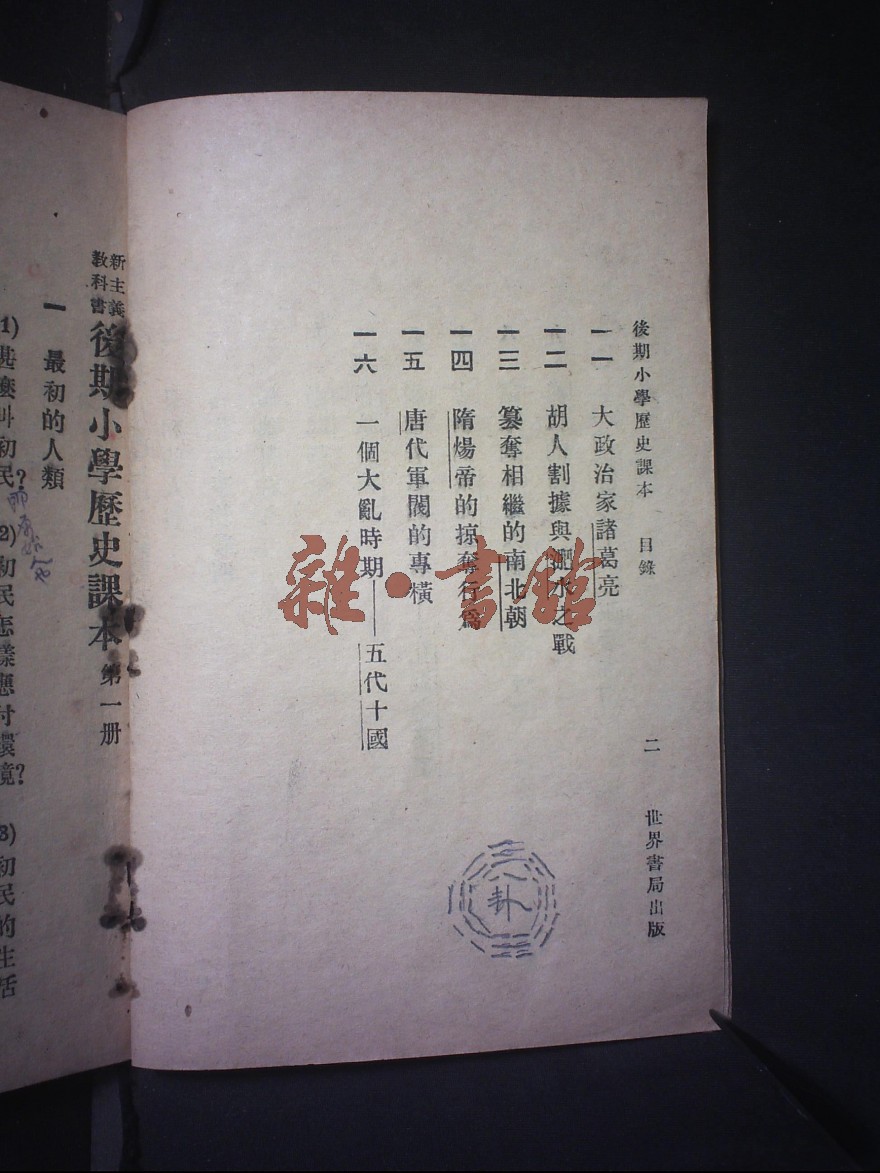 後期小學歷史課本 目錄 二 世界書局出版
一一 大政治家諸葛亮
一二 胡人割據與淝水之戰
一三 篡奪相繼的南北朝
一四 隋煬帝的掠奪行爲
一五 唐代軍閥的專橫
一六 一個大亂時期——五代十國
八卦
雜·書館
新主義教科書 後期小學歷史課本 第一册
一 最初的人類
1) 甚麼叫初民? 2) 初民怎樣應付環境? 3) 初民的生活